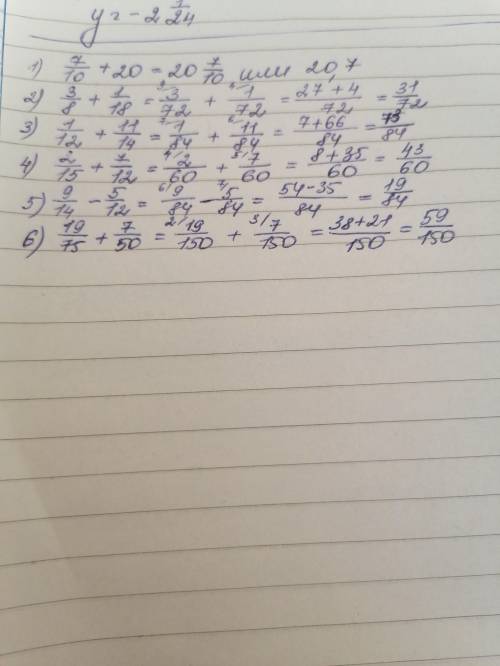 y = -2 1/24
1) 7/10 + 20 = 20 7/10 или 20,7
2) 3/8 + 1/18 = 9/ 3/72 + 4/ 1/72 = 27+4/72 = 31/72
3) 1/12 + 11/14 = 7/ 1/84 + 6/ 11/84 = 7+66/84 = 73/84
4) 2/15 + 7/12 = 4/ 2/60 + 5/ 7/60 = 8+35/60 = 43/60
5) 9/14 - 5/12 = 6/ 9/84 - 7/ 5/84 = 54-35/84 = 19/84
6) 19/75 + 7/50 = 2/ 19/150 + 3/ 7/150 = 38+21/150 = 59/150